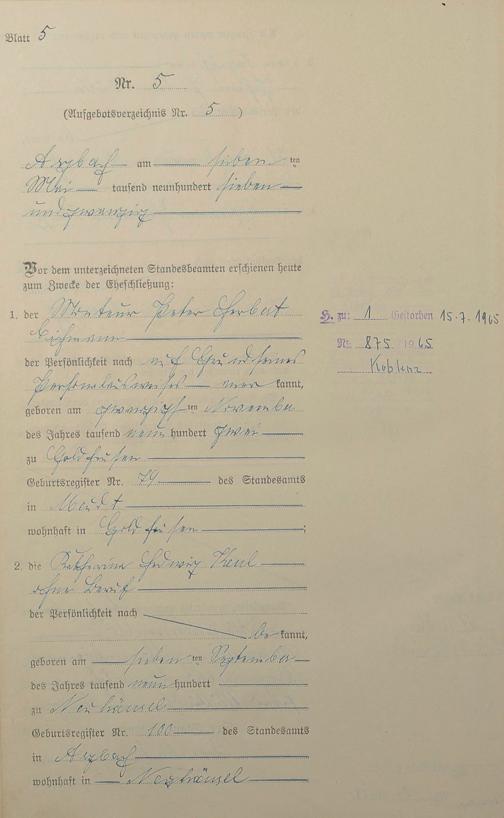 Blatt 5
Nr. 5
(Aufgebotsverzeichnis Nr. 5 )
Arzbach am sieben ten
Mai tausend neunhundert sieben
undzwanzig
Vor dem unterzeichneten Standesbeamten erschienen heute
zum Zwecke der Eheschließung:
1. der Monteur Peter Herbert
der Persönlichkeit nach auf Grund seines
Personalausweises kannt,
geboren am zwanzigsten ten November
des Jahres tausend neun hundert zwei
zu Goldhausen
Geburtsregister Nr. 79 des Standesamts
in Meudt
wohnhaft in Goldhausen ;
H. zu: 1 Gestorben 15.7.1965
Nr. 875 / 1965
Koblenz
2. die Katharina Hedwig
ohne Beruf
der Persönlichkeit nach
be kannt,
geboren am sieben ten September
des Jahres tausend neun hundert
zu Neuhäusel
Geburtsregister Nr. 100 des Standesamts
in Arzbach
wohnhaft in Neuhäusel